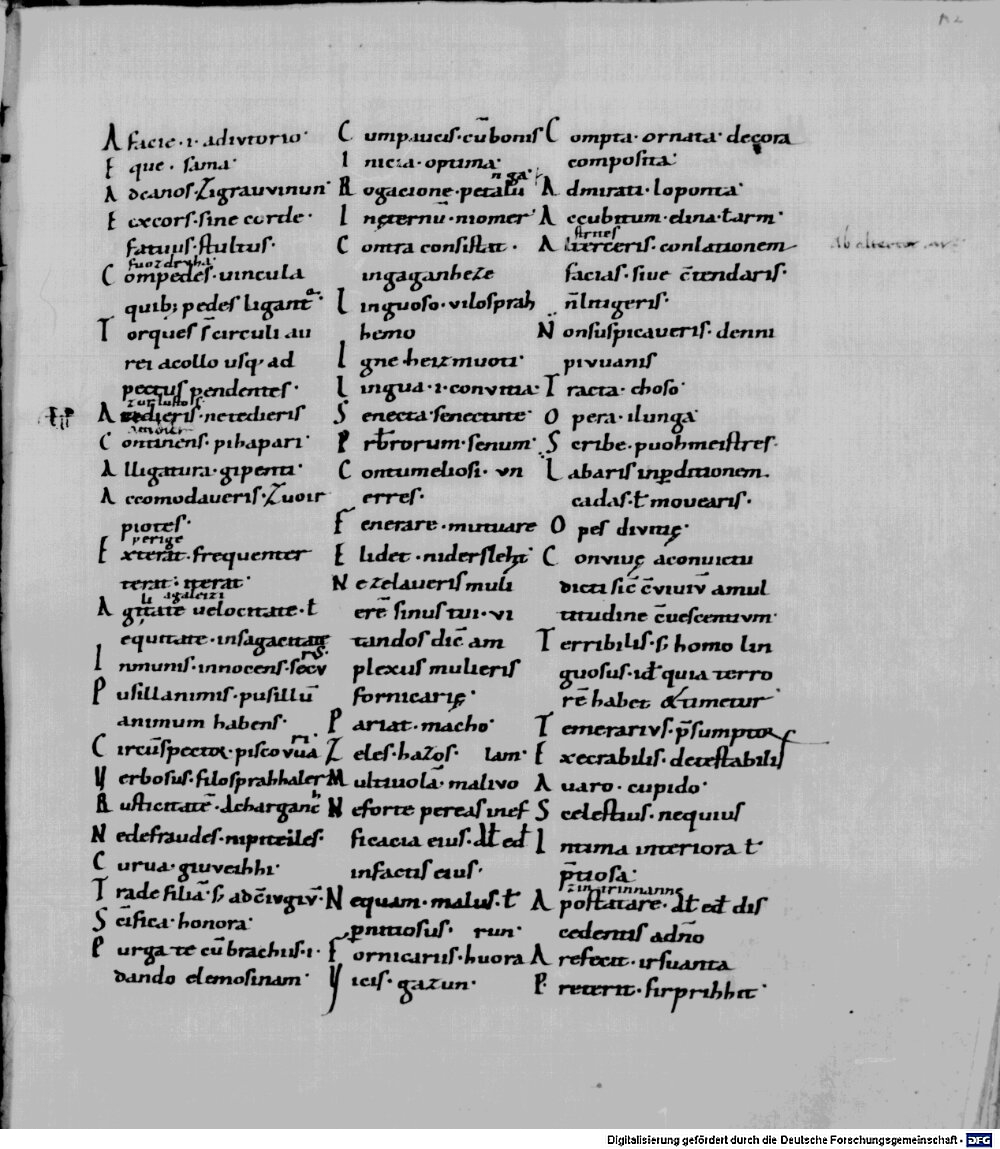 A facie · i · adiutorio ·
E que · sama ·
A dcanos · Zigrauuinun ·
E xcors · sine corde ·
fatuus · stultus ·
fuozdruha
C ompedes · uincula
quib; pedes ligant̄ ·
T orques · s̄ circuli au
rei acollo usq; ad
pectus pendentes ·
zurlustos
A cedieris · netedieris
amouer
C ontinens · pihapari ·
A lligatura · gipenti ·
A ccomodaueris · Zuoir
piotes ·
perige
E xterat · frequenter
terat · iterat ·
li agaleizi
A gitate uelocitate · ł
equitate · insagacitate
I nmunis · innocens · secu
rus ·
P usillanimis · pusillū
animum habens ·
C ircūspector · piscouuari ·
V erbosus · filosprahhaler
R usticitatē · dcharganch
N edefraudes · nipiteiles ·
C urua · giuueihhi ·
T rade filiā · s; adc̄iugiū ·
S c̄ifica · honora ·
P urga te cū brachiis · i ·
dando elemosinam ·
C umpaucis · cū bonis
I nicia · optima ·
nga
R ogacione · petalu
I nęternū · niomer
C ontra consistat ·
ingaganheze
L inguoso · uilosprah
hemo
I gne · heizmuoti ·
L ingua · i · conuitia ·
S enecta · senectute ·
P rb̄rorum · senum ·
C ontumeliosi · un
erres ·
F enerare · mutuare
E lidet · niderslehit ·
N ezelaueris muli
erē sinus tui · ui
tandos dic̄ am
plexus mulieris
fornicarię ·
P ariat · macho ·
Z eles · hazos · lam ·
M ultiuolā · maliuo
N eforte pereas inef
ficacia eius · ałt ed
infactis eius ·
N equam · malus · ł
pnitiosus · run ·
F ornicariis · huora
V icis · gazun ·
C ompta · ornata · decora
composita ·
A dmirati · loponta ·
A ccubitum · elina · ł arm ·
strites
A lterceris · conlationem
facias · siue c̄tendaris ·
n̄litigeris ·
N onsuspicaueris · denni
piuuanis
T racta · choso ·
O pera · ilunga ·
S cribe · puohmeistres ·
L abaris inpditionem ·
cadas · ł mouearis ·
O pes diuitię ·
C onuiuę aconuictu
dicti sic̄ c̄uiuiū amul
titudine c̄uescentium ·
T erribilis · s; homo lin
guosus · id quia terro
rē habet & timetur ·
T emerarius · p̄sumptor
E xecrabilis · detestabilis
A uaro · cupido ·
S celestius · nequius
I ntima interiora ł
p̄tiosa ·
zintrinnanne
A postatare · ałt ed dis
cedentis adn̄o
A refecit · irsuanta
P reterit · firprihhit ·
Digitalisierung gefördert durch die Deutsche Forschungsgemeinschaft - DFG